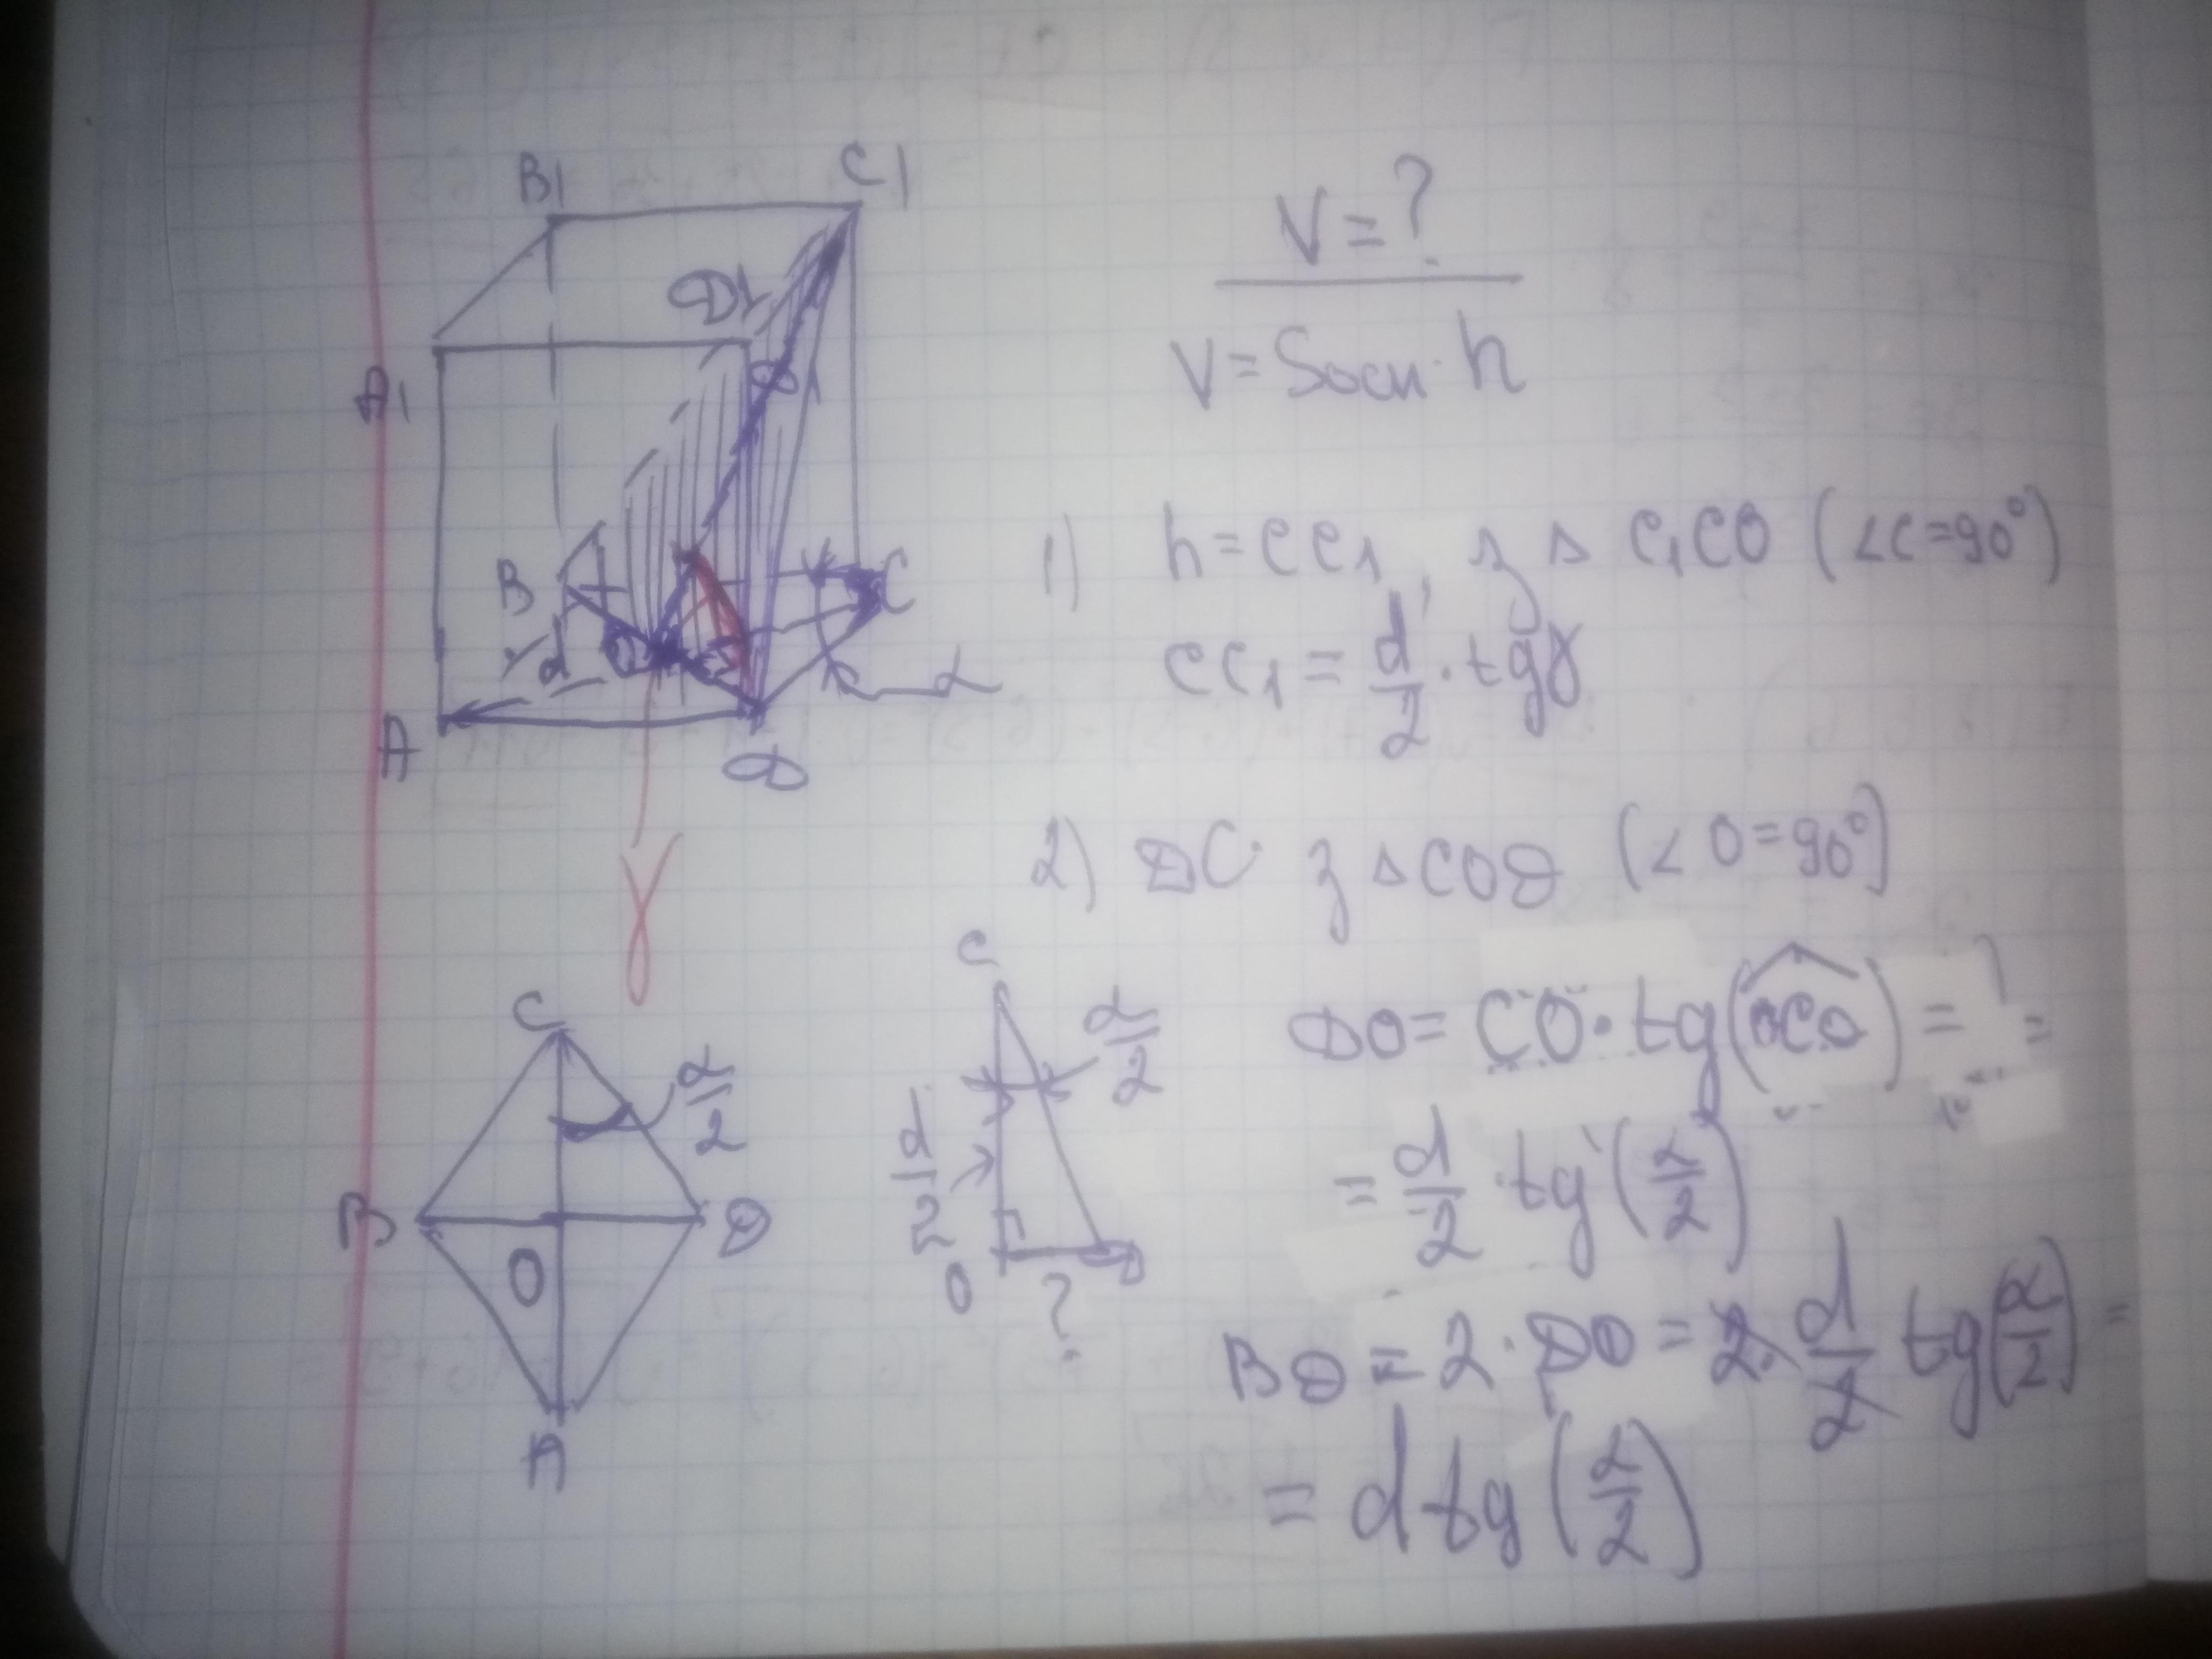 B1
C1
D1
A1
B
C
O
d
α
A
D
γ
V=?
V=Sосн·h
1) h=CC₁, з Δ C₁CO (∠C=90°)
CC₁ = d/2 · tgγ
2) DC з ΔCOD (∠O=90°)
C
α/2
B
D
O
A
C
α/2
d/2
O
?
D
DO = CO · tg(OCD) = =
= d/2 · tg (α/2)
BD = 2 · DO = 2 · d/2 tg(α/2) =
= d tg (α/2)